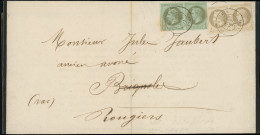 Monsieur Jules Jaubert
ancien avoué
Brignoles
(var)
Rougiers